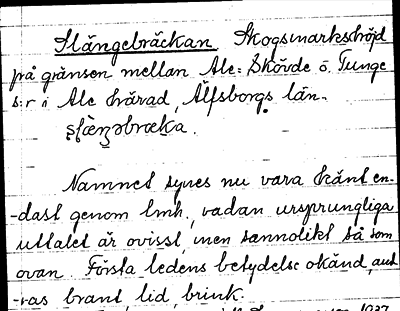 Slängebräckan Skogsmarkshöjd
på gränsen mellan Ale-Skövde o. Tunge
s:r i Ale härad, Älfsborgs län.
Namnet synes nu vara känt en-
-dast genom lmh., vadan ursprungliga
uttalet är ovisst, men sannolikt så som
ovan. Första ledens betydelse okänd, and-
-ras brant, lid, brink.